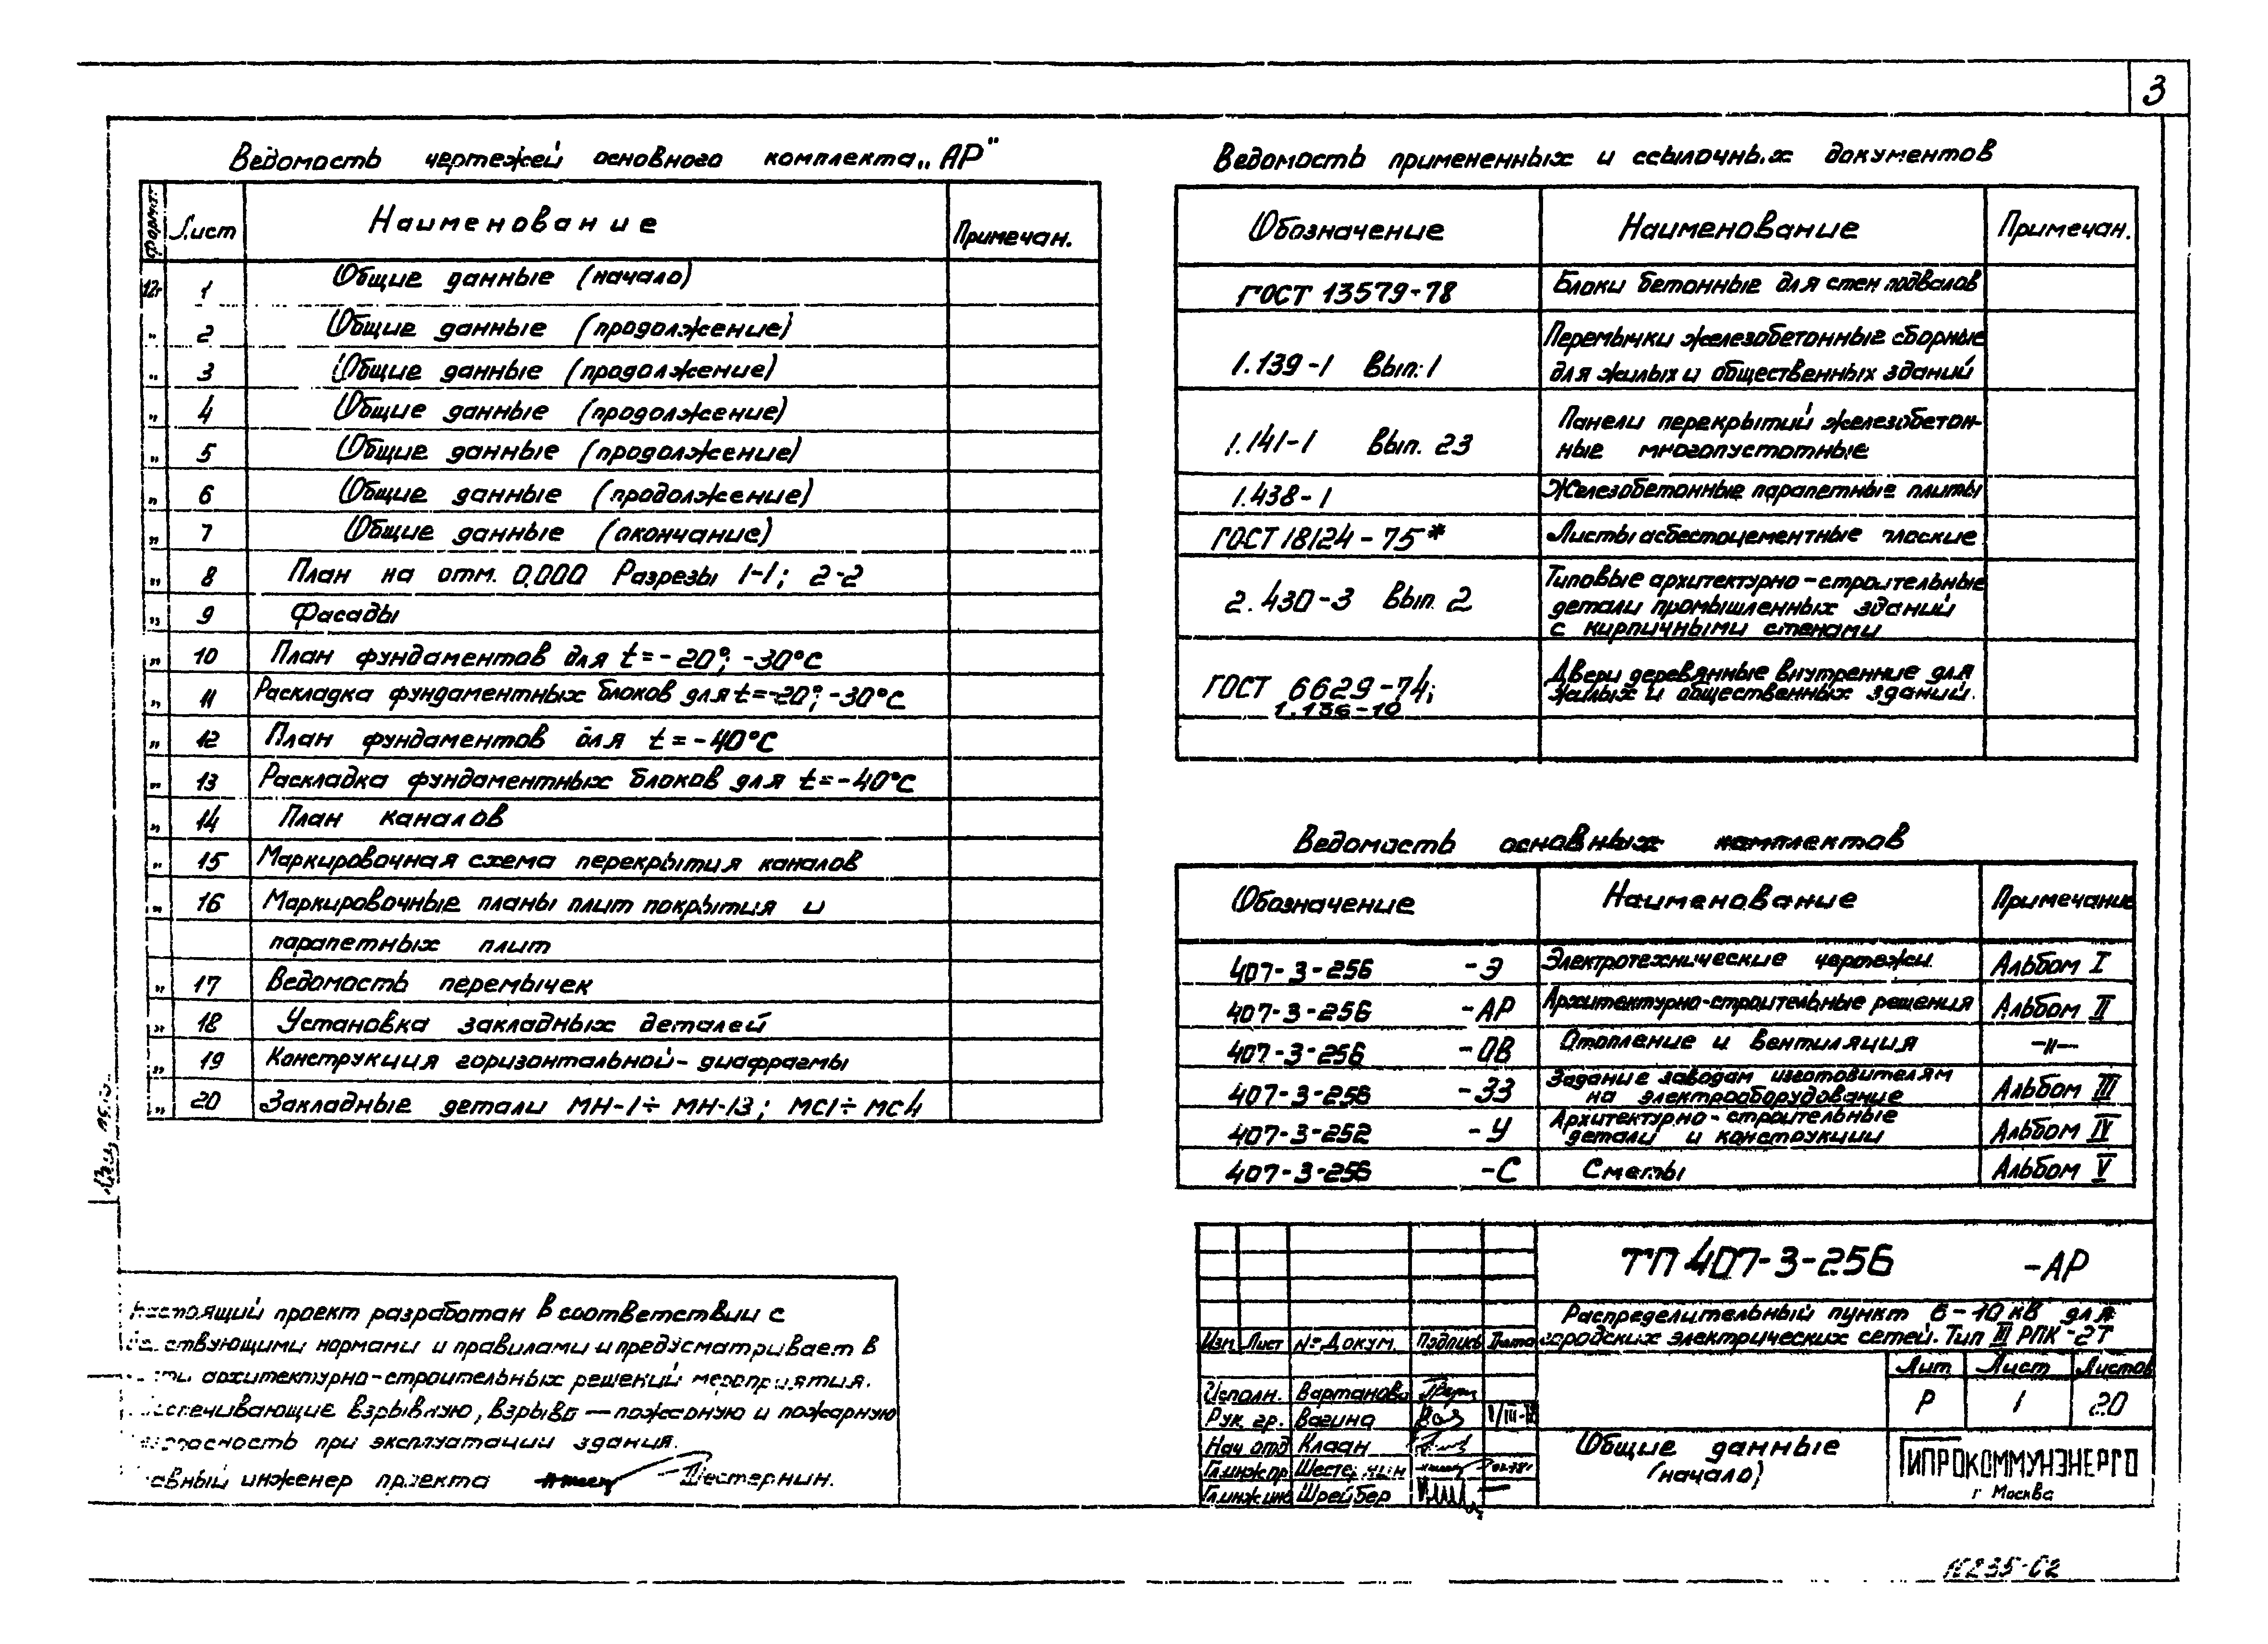 3
Ведомость чертежей основного комплекта „АР"
Формат Лист Наименование Примечан.
12г 1 Общие данные (начало)
" 2 Общие данные (продолжение)
" 3 Общие данные (продолжение)
" 4 Общие данные (продолжение)
" 5 Общие данные (продолжение)
" 6 Общие данные (продолжение)
" 7 Общие данные (окончание)
" 8 План на отм. 0.000 Разрезы 1-1; 2-2
" 9 Фасады
" 10 План фундаментов для t=-20°; -30°С
" 11 Раскладка фундаментных блоков для t=-20°; -30°С
" 12 План фундаментов для t=-40°С
" 13 Раскладка фундаментных блоков для t=-40°С
" 14 План каналов
" 15 Маркировочная схема перекрытия каналов
" 16 Маркировочные планы плит покрытия и
парапетных плит
" 17 Ведомость перемычек
" 18 Установка закладных деталей
" 19 Конструкция горизонтальной-диафрагмы
" 20 Закладные детали МН-1÷МН-13; МС1÷МС4
Ведомость примененных и ссылочных документов
Обозначение Наименование Примечан.
ГОСТ 13579-78 Блоки бетонные для стен подвалов
1.139-1 Вып.1 Перемычки железобетонные сборные
для жилых и общественных зданий
1.141-1 Вып. 23 Панели перекрытий железобетон-
ные многопустотные
1.438-1 Железобетонные парапетные плиты
ГОСТ 18124-75* Листы асбестоцементные плоские
2.430-3 Вып. 2 Типовые архитектурно-строительные
детали промышленных зданий
с кирпичными стенами
ГОСТ 6629-74; Двери деревянные внутренние для
1.136-10 жилых и общественных зданий.
Ведомость основных комплектов
Обозначение Наименование Примечание
407-3-256 -Э Электротехнические чертежи Альбом I
407-3-256 -АР Архитектурно-строительные решения Альбом II
407-3-256 -ОВ Отопление и вентиляция —"—
407-3-256 -ЗЗ Задание заводам изготовителям
на электрооборудование Альбом III
407-3-252 -У Архитектурно-строительные
детали и конструкции Альбом IV
407-3-256 -С Сметы Альбом V
Настоящий проект разработан в соответствии с
действующими нормами и правилами и предусматривает в
архитектурно-строительных решений мероприятия.
обеспечивающие взрывную, взрыво-пожарную и пожарную
безопасность при эксплуатации здания.
Главный инженер проекта Шестернин.
ТП 407-3-256 -АР
Распределительный пункт 6-10 кВ для
городских электрических сетей. Тип III РПК-2Т
Изм Лист № Докум. Подпись Дата
Лит Лист Листов
Р 1 20
Исполн. Вартанова
Рук. гр. Вагина
Нач отд Клаан
Гл.инж.пр Шестернин
Гл.инж.ин Шрейбер
Общие данные
(начало)
ГИПРОКОММУНЭНЕРГО
г Москва